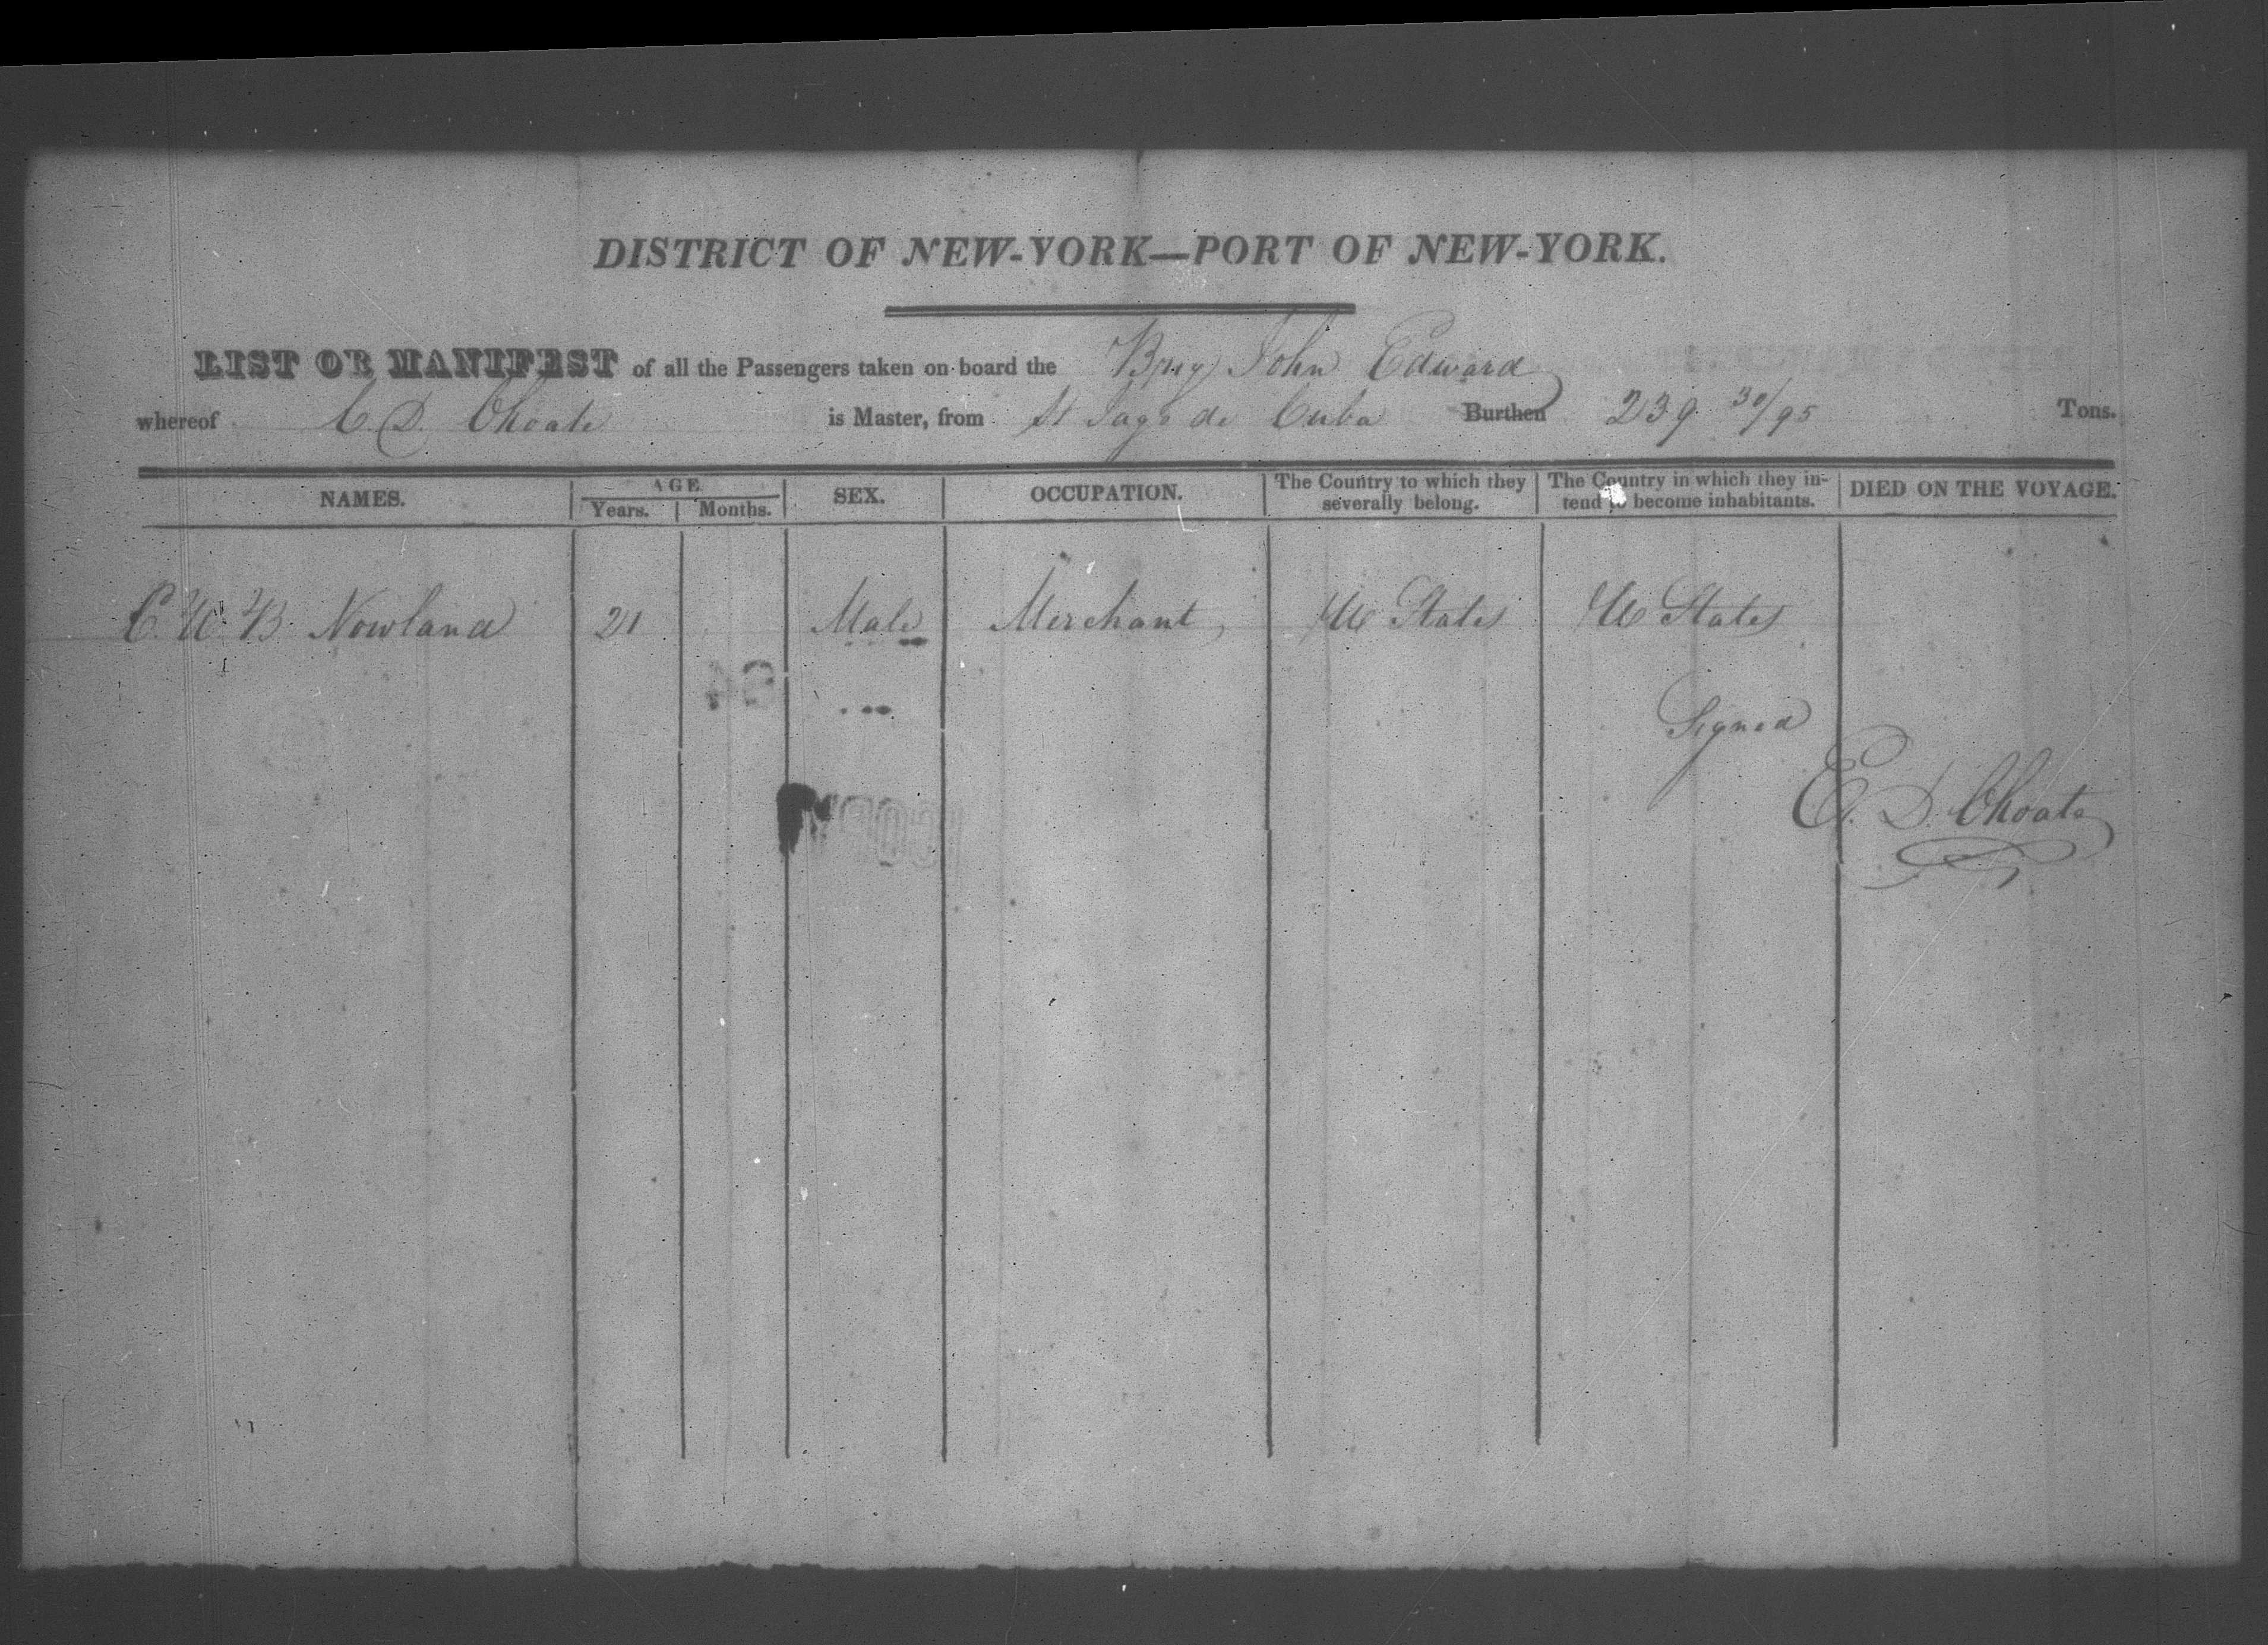 DISTRICT OF NEW-YORK—PORT OF NEW-YORK.
LIST OR MANIFEST of all the Passengers taken on board the Brig John Edward
whereof E. D. Choate is Master, from St Iago de Cuba Burthen 239 30/95 Tons.
NAMES. AGE SEX. OCCUPATION. The Country to which they severally belong. The Country in which they intend to become inhabitants. DIED ON THE VOYAGE.
Years. Months.
C. W. B. Nowland 21 Male Merchant U States U States
Signed
E. D. Choate